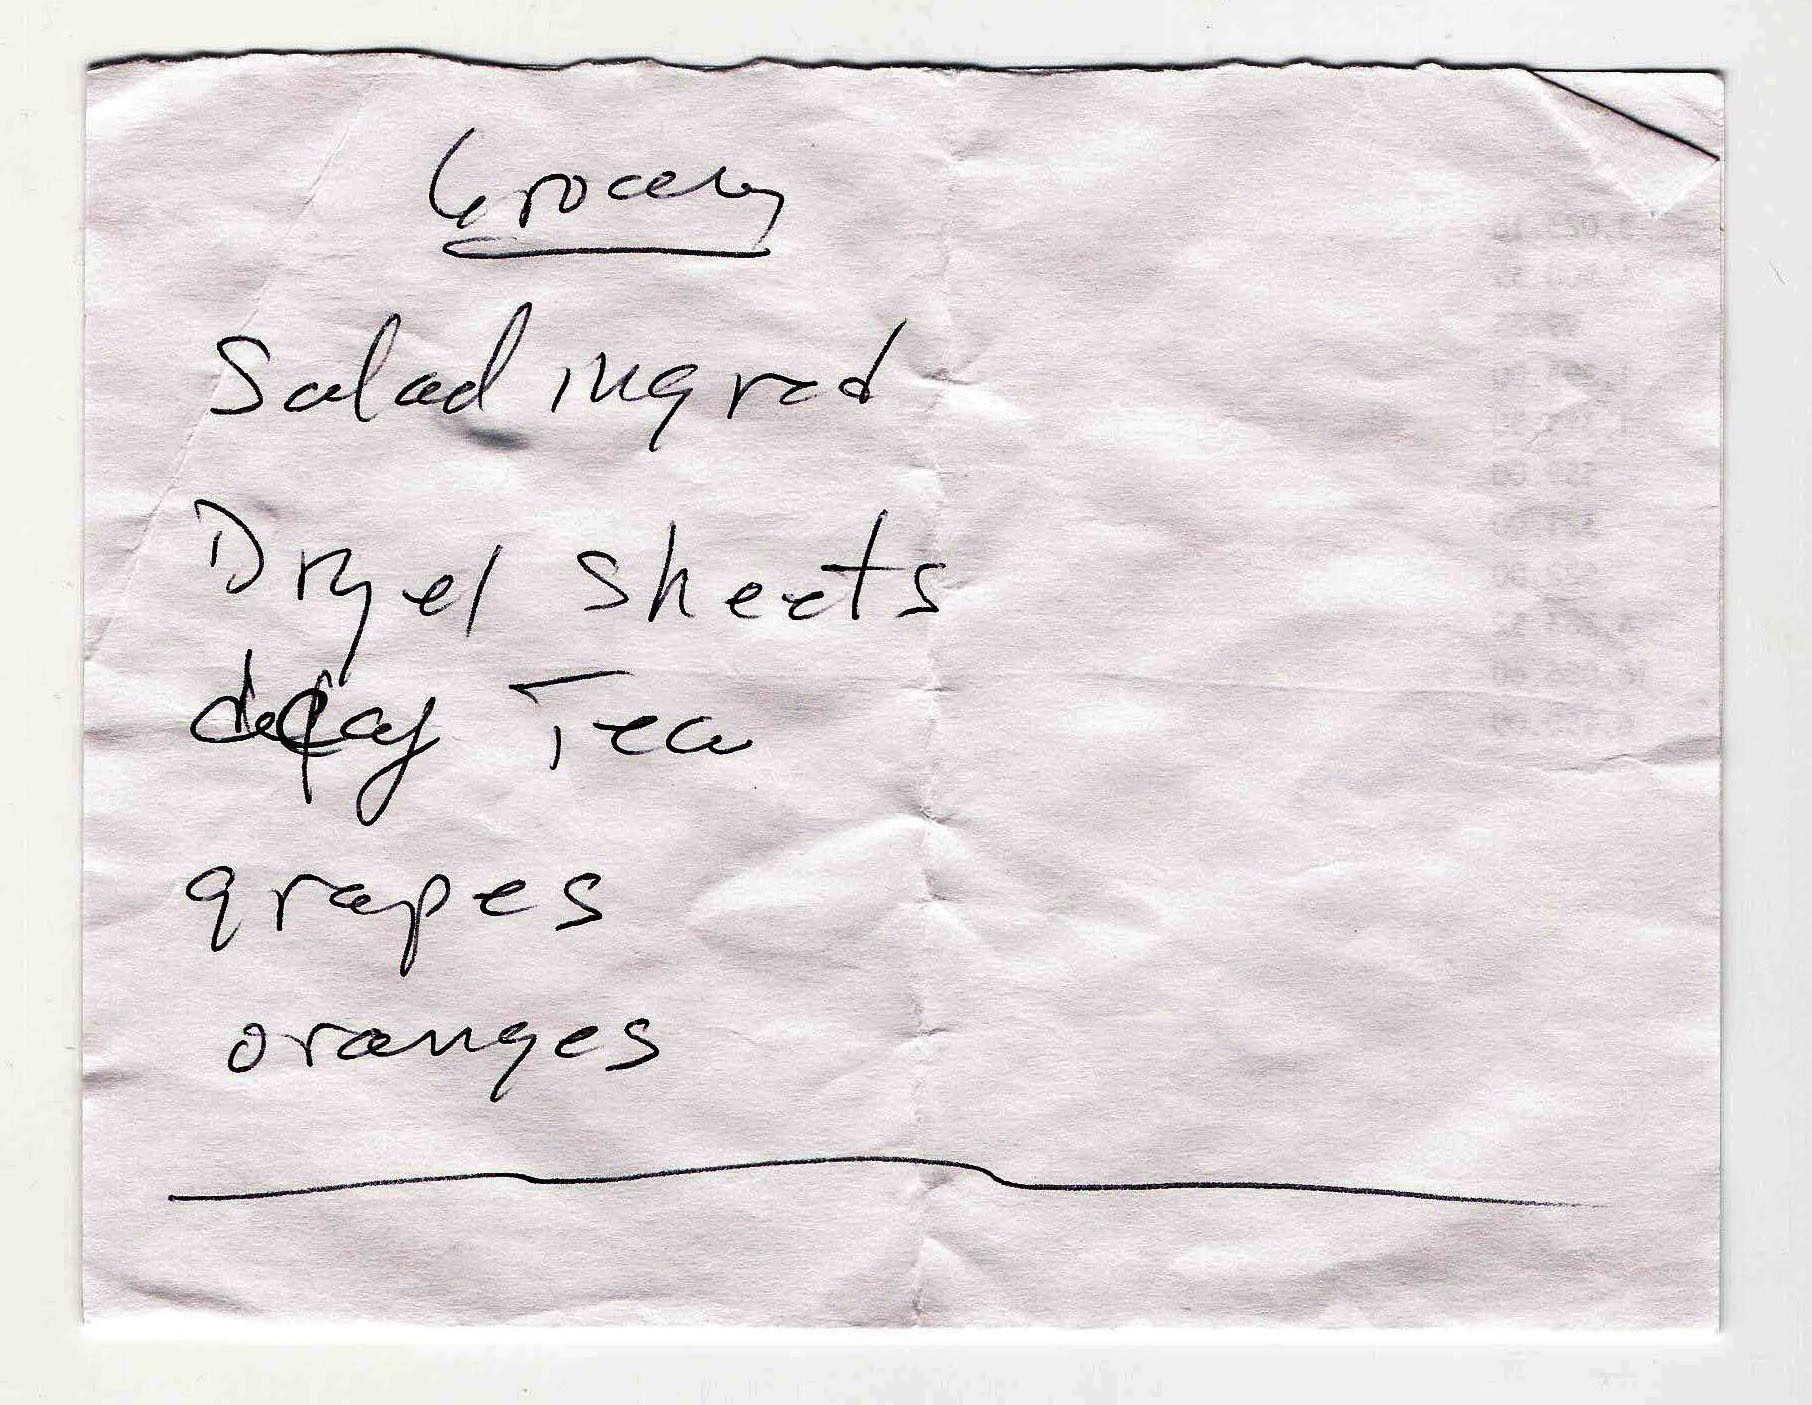 Grocery
Salad ingred
Dryel sheets
decaf Tea
grapes
oranges